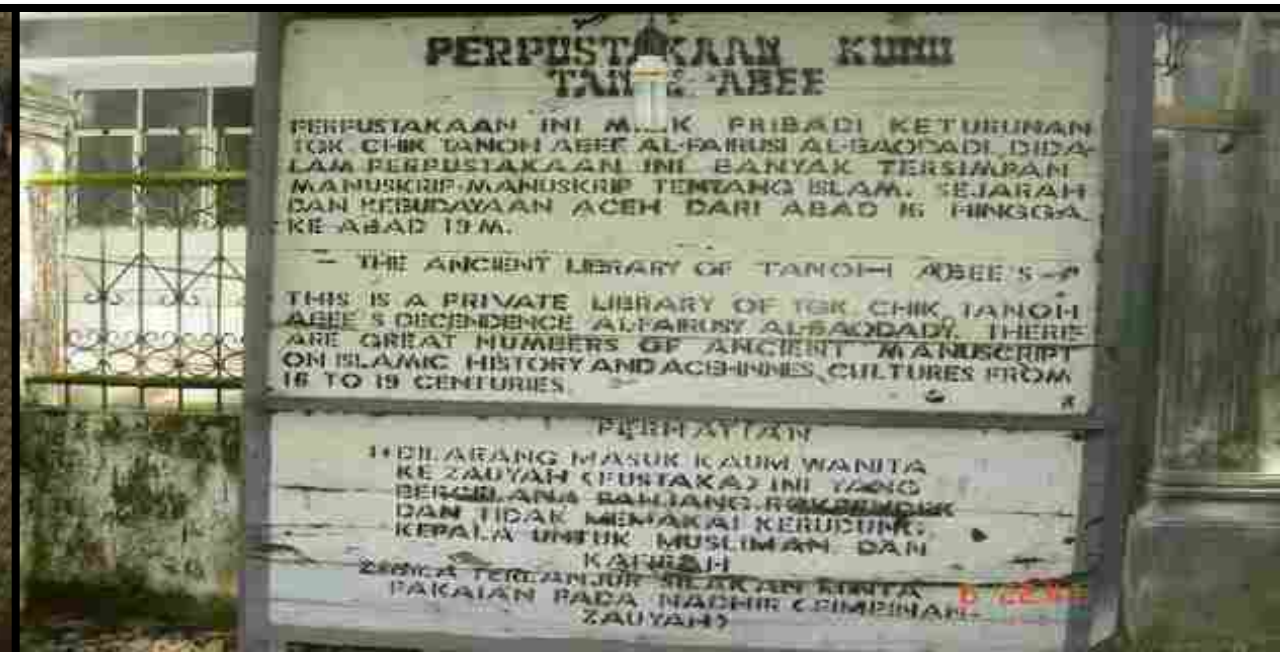 PERPUSTAKAAN KUNU
ABEE
PERPUSTAKAAN INI PRIBADI KETURUNAN
TGK. CHIK TANOH ABEE AL-FAIRUSI AL-BAGDADI. DIDA-
LAM PERPUSTAKAAN INI BANYAK TERSIMPAN
MANUSKRIP-MANUSKRIP TENTANG ISLAM, SEJARAH
DAN KEBUDAYAAN ACEH DARI ABAD 16 HINGGA
KE ABAD 19 M.
THE ANCIENT LIBRARY OF TANOH ABEE'S
THIS IS A PRIVATE LIBRARY OF TGK. CHIK TANOH
ABEE'S DECENDENCE AL-FAIRUSY AL-BAGDADY. THERE
ARE GREAT NUMBERS OF ANCIENT MANUSCRIPT
ON ISLAMIC HISTORY AND ACEHINNES, CULTURES FROM
16 TO 19 CENTURIES.
PERHATIAN
1. DILARANG MASUK KAUM WANITA
KE ZAUYAH (PUSTAKA) INI YANG
BERCELANA PANJANG, ROK PENDEK
DAN TIDAK MEMAKAI KERUDUNG
KEPALA UNTUK MUSLIMAH DAN
KAFIRAH
2. JIKA TERLANJUR SILAKAN MINTA
PAKAIAN PADA NADHIR (PIMPINAN-
ZAUYAH)